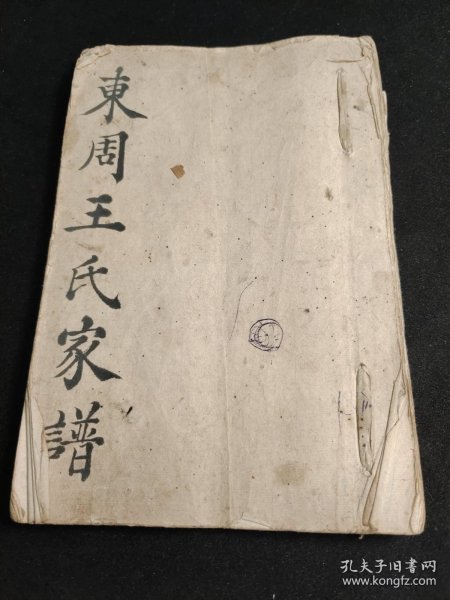 東周王氏家譜
孔夫子旧书网
www.kongfz.com